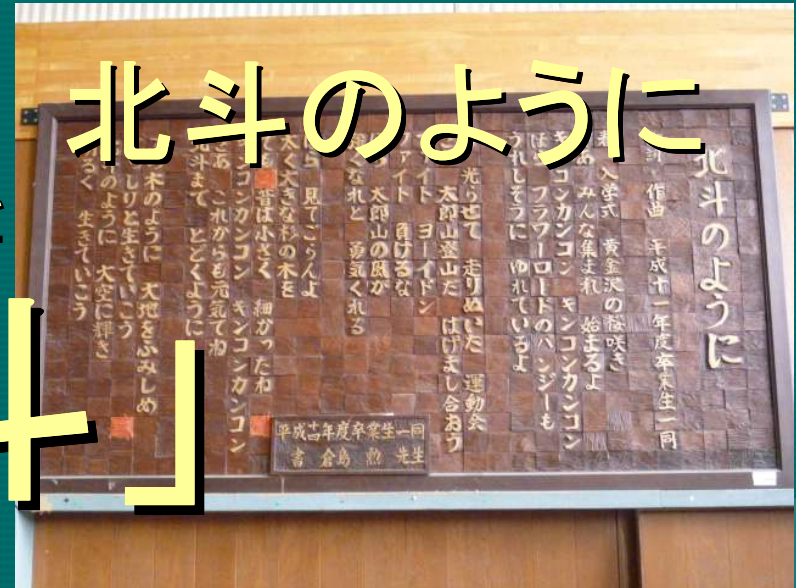 北斗のように
十」
北斗のように
作曲 平成十一年度卒業生一同
入学式 黄金沢の桜咲き
みんな集まれ 始まるよ
キンコンカンコン キンコンカンコン
フラワーロードのパンジーも
うれしそうに ゆれているよ
光らせて 走りぬいた 運動会
太郎山登山だ はげまし合おう
ヨーイドン
ファイト 負けるな
太郎山の風が
強くなれと 勇気くれる
見てごらんよ
太く大きな杉の木を
昔は小さく 細かったね
コンカンコン キンコンカンコン
これからも元気でね
北斗まで とどくように
木のように 大地をふみしめ
しりと生きていこう
のように 大空に輝き
るく 生きていこう
平成十四年度卒業生一同
書 倉島 勲 先生